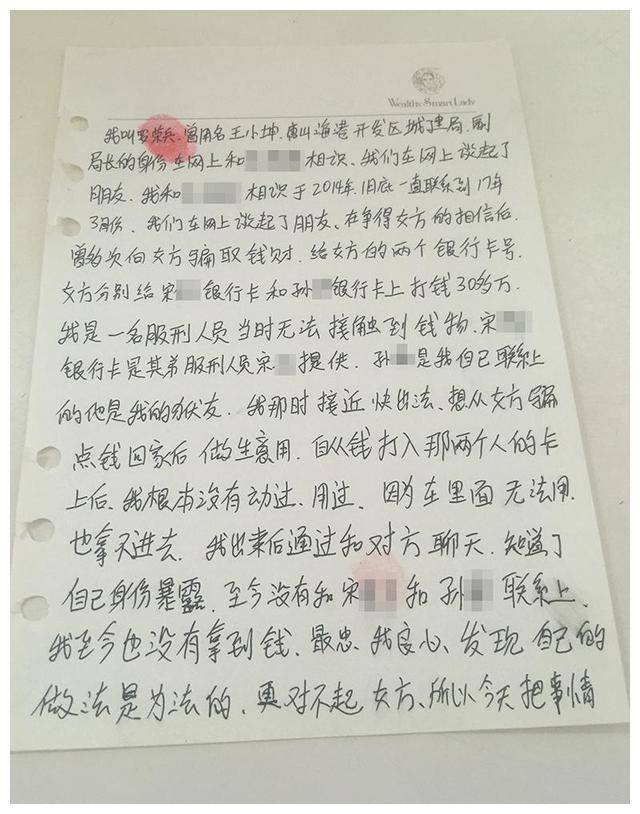 Wealthy Smart Lady
我叫罗荣兵、曾用名王小坤.唐山海港开发区城建局.副
局长的身份在网上和 相识、我们在网上谈起了
朋友、我和 相识于2014年.1月底一直联系到17年
3月份、我们在网上谈起了朋友、在争得女方的相信后.
曾多次向女方骗取钱财、给女方的两个银行卡号.
女方分别给宋 银行卡和孙 银行卡上打钱30多万.
我是一名服刑人员当时无法接触到钱物.宋
银行卡是其弟服刑人员宋 提供.孙 是我自己联系上
的他是我的狱友.我那时接近快出法、想从女方骗
点钱回家后做生意用.自从钱打入那两个人的卡
上后、我根本没有动过、用过、因为在里面无法用.
也拿不进去.我出来后通过和对方聊天.知道了
自己身份暴露、至今没有和宋 和孙 联系上、
我至今也没有拿到钱、最忠、我良心、发现自己的
做法是为法的、更对不起女方、所以今天把事情